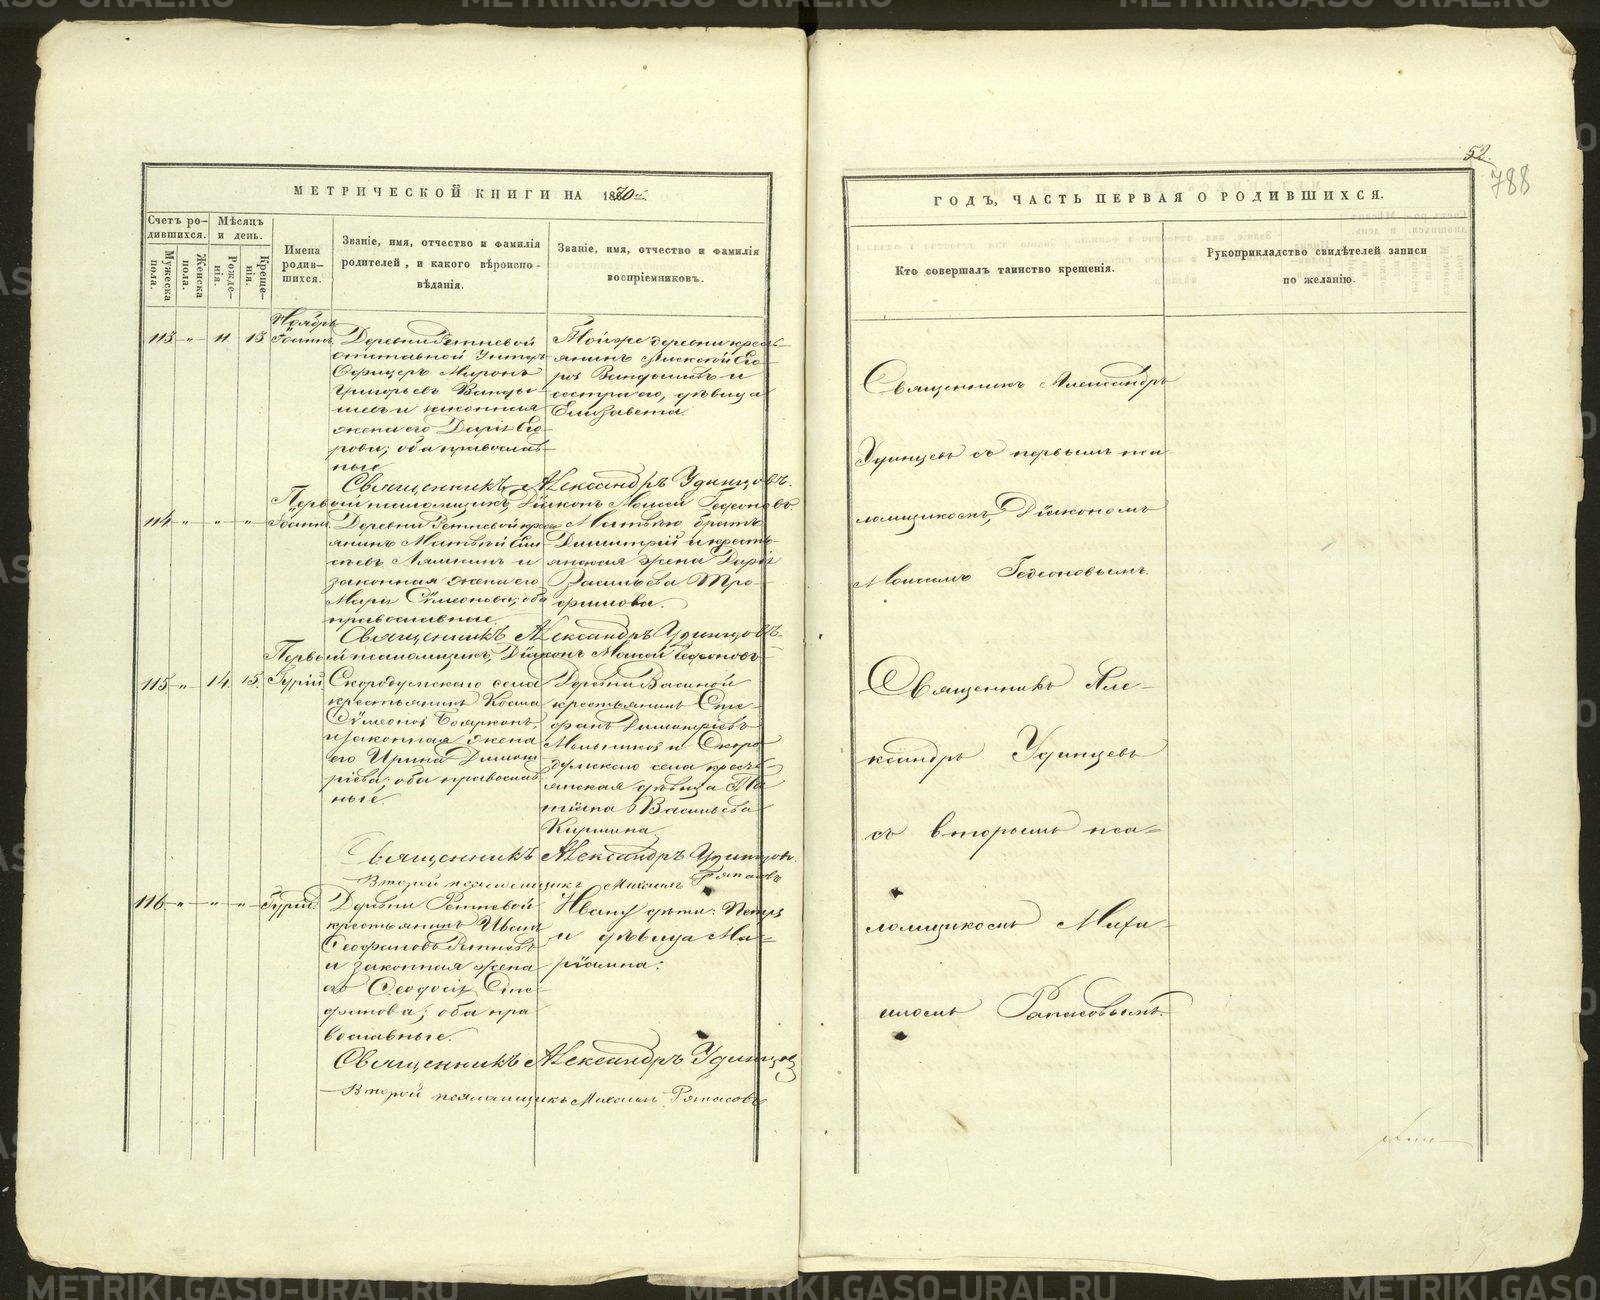 METRIKI.GASO-URAL.RU
52.
788
МЕТРИЧЕСКОЙ КНИГИ НА 1870й
Счетъ ро-
дившихся.
Мѣсяцъ
и день.
Мужеска
пола.
Женска
пола.
Рожде-
нія.
Креще-
нія.
Имена
родив-
шихся.
Званіе, имя, отчество и фамилія
родителей, и какого вѣроиспо-
вѣданія.
Званіе, имя, отчество и фамилія
воспріемниковъ.
Ноябрь
113 " 11 13 Іоаннъ
Деревни Ретневой
отставной Унтеръ
Офицеръ Миронъ
Григорьевъ Ванды-
шевъ и законная
жена его Дарія Его-
рова; оба православ-
ные.
Тойже деревни крест-
янинъ Его-
ръ Вандышевъ и
сестра его, дѣвица
Елизавета.
Священникъ Александръ Удинцовъ.
Первой псаломщикъ, Діаконъ Моисей Гедеоновъ.
114 " " " Іоаннъ
Деревни Ретневой крест
янинъ Матвѣй
и
законная жена его
Марія Сѵмеонова; оба
православные.
Матвѣю братъ
Димитрій и кресть-
янская жена Дарія
Васильева Тро-
фимова.
Священникъ Александръ Удинцовъ.
Первой псаломщикъ, Діаконъ Моисей Гедеоновъ
115 " 14 15 Гурій
Скородумскаго села
крестьянинъ Косма
Сѵмеоновъ
и законная жена
его Ирина Димит-
ріева; оба православ-
ные.
Деревни
крестьянинъ Сте-
фанъ Димитріевъ
Мельниковъ и Скоро-
думскаго села кресть-
янская дѣвица Та-
тіана Васильева
Священникъ Александръ Удинцовъ.
Второй псаломщикъ Михаилъ
116 " " " Гурій
Деревни Ретневой
крестьянинъ Иванъ
Ѳеофановъ Ретневъ
и законная жена
его Ѳеодосія Сте-
фанова; оба пра-
вославные.
Ивану дѣти: Петръ
и дѣвица Ма-
ріамна:
Священникъ Александръ Удинцовъ
Второй псаломщикъ Михаилъ
ГОДЪ, ЧАСТЬ ПЕРВАЯ О РОДИВШИХСЯ.
Кто совершалъ таинство крещенія.
Рукоприкладство свидѣтелей записи
по желанію.
Священникъ Александръ
Удинцевъ съ первымъ пса
ломщикомъ, Діакономъ
Моисеемъ Гедеоновымъ.
Священникъ Але-
ксандръ Удинцевъ
съ вторымъ пса-
ломщикомъ Миха-
иломъ